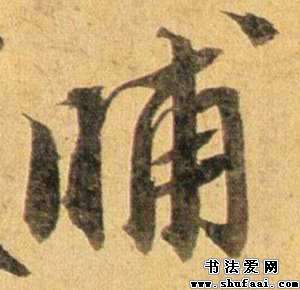 晡
书法爱网
www.shufaai.com